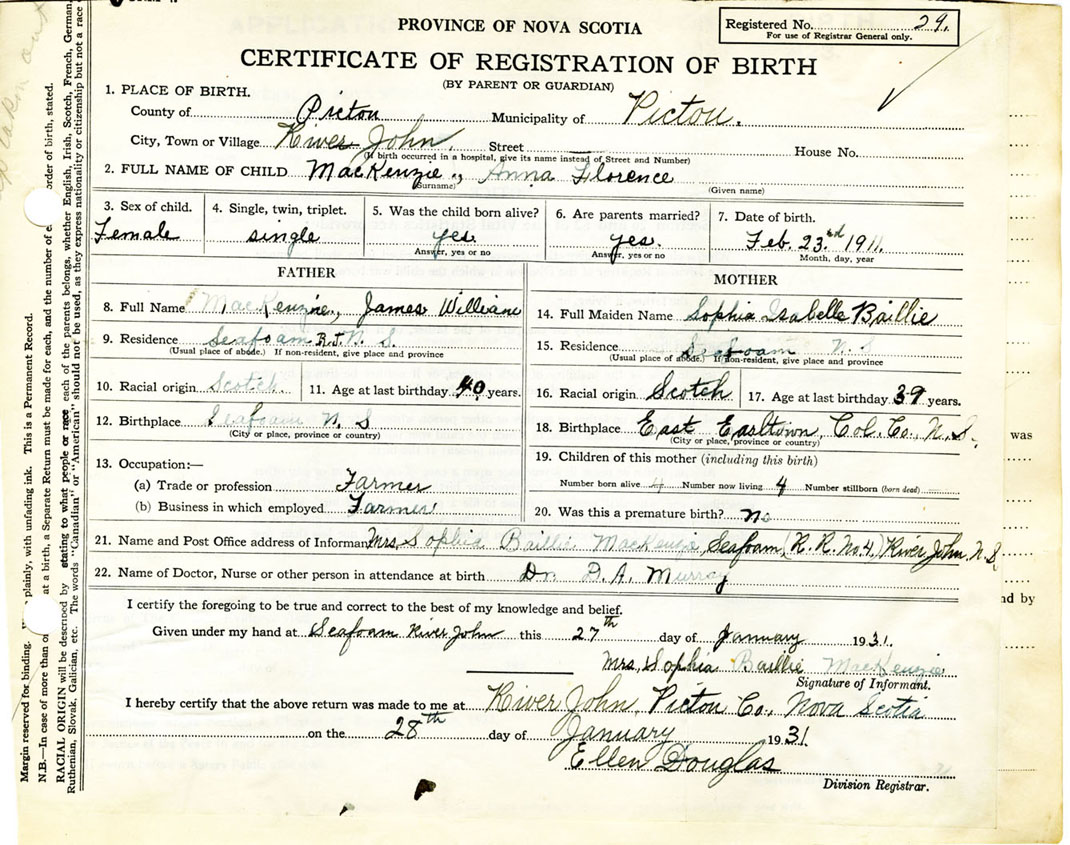 PROVINCE OF NOVA SCOTIA
Registered No. 29.
For use of Registrar General only.
CERTIFICATE OF REGISTRATION OF BIRTH
(BY PARENT OR GUARDIAN)
1. PLACE OF BIRTH.
County of Pictou Municipality of Pictou.
City, Town or Village River John. Street House No.
(If birth occurred in a hospital, give its name instead of Street and Number)
2. FULL NAME OF CHILD MacKenzie, Anna Florence
(Surname) (Given name)
3. Sex of child. 4. Single, twin, triplet. 5. Was the child born alive? 6. Are parents married? 7. Date of birth.
Female single yes. yes. Feb. 23rd 1911.
Answer, yes or no Answer, yes or no Month, day, year
FATHER MOTHER
8. Full Name MacKenzie, James William
14. Full Maiden Name Sophia Isabelle Baillie
9. Residence Seafoam N. S.
(Usual place of abode.) If non-resident, give place and province
15. Residence Seafoam N. S
(Usual place of abode.) If non-resident, give place and province
10. Racial origin Scotch 11. Age at last birthday 40 years.
16. Racial origin Scotch 17. Age at last birthday 39 years.
12. Birthplace Seafoam N. S
(City or place, province or country)
18. Birthplace East Earltown, Col. Co., N. S.
(City or place, province or country)
13. Occupation:—
(a) Trade or profession Farmer
(b) Business in which employed Farmer
19. Children of this mother (including this birth)
Number born alive 4 Number now living 4 Number stillborn (born dead)
20. Was this a premature birth? no
21. Name and Post Office address of Informant Mrs. Sophia Baillie MacKenzie Seafoam (R. R. No. 4) River John, N. S
22. Name of Doctor, Nurse or other person in attendance at birth Dr. D. A. Murray
I certify the foregoing to be true and correct to the best of my knowledge and belief.
Given under my hand at Seafoam River John this 27th day of January 1931.
Mrs. Sophia Baillie MacKenzie
Signature of Informant.
I hereby certify that the above return was made to me at River John, Pictou Co., Nova Scotia
on the 28th day of January 1931.
Ellen Douglas
Division Registrar.
Margin reserved for binding. plainly, with unfading ink. This is a Permanent Record.
N.B.—In case of more than at a birth, a Separate Return must be made for each, and the number of order of birth, stated.
RACIAL ORIGIN will be described by stating to what people or race each of the parents belongs, whether English, Irish, Scotch, French, German,
Ruthenian, Slovak, Galician, etc. The words "Canadian" or "American" should not be used, as they express nationality or citizenship but not a race
was
nd by